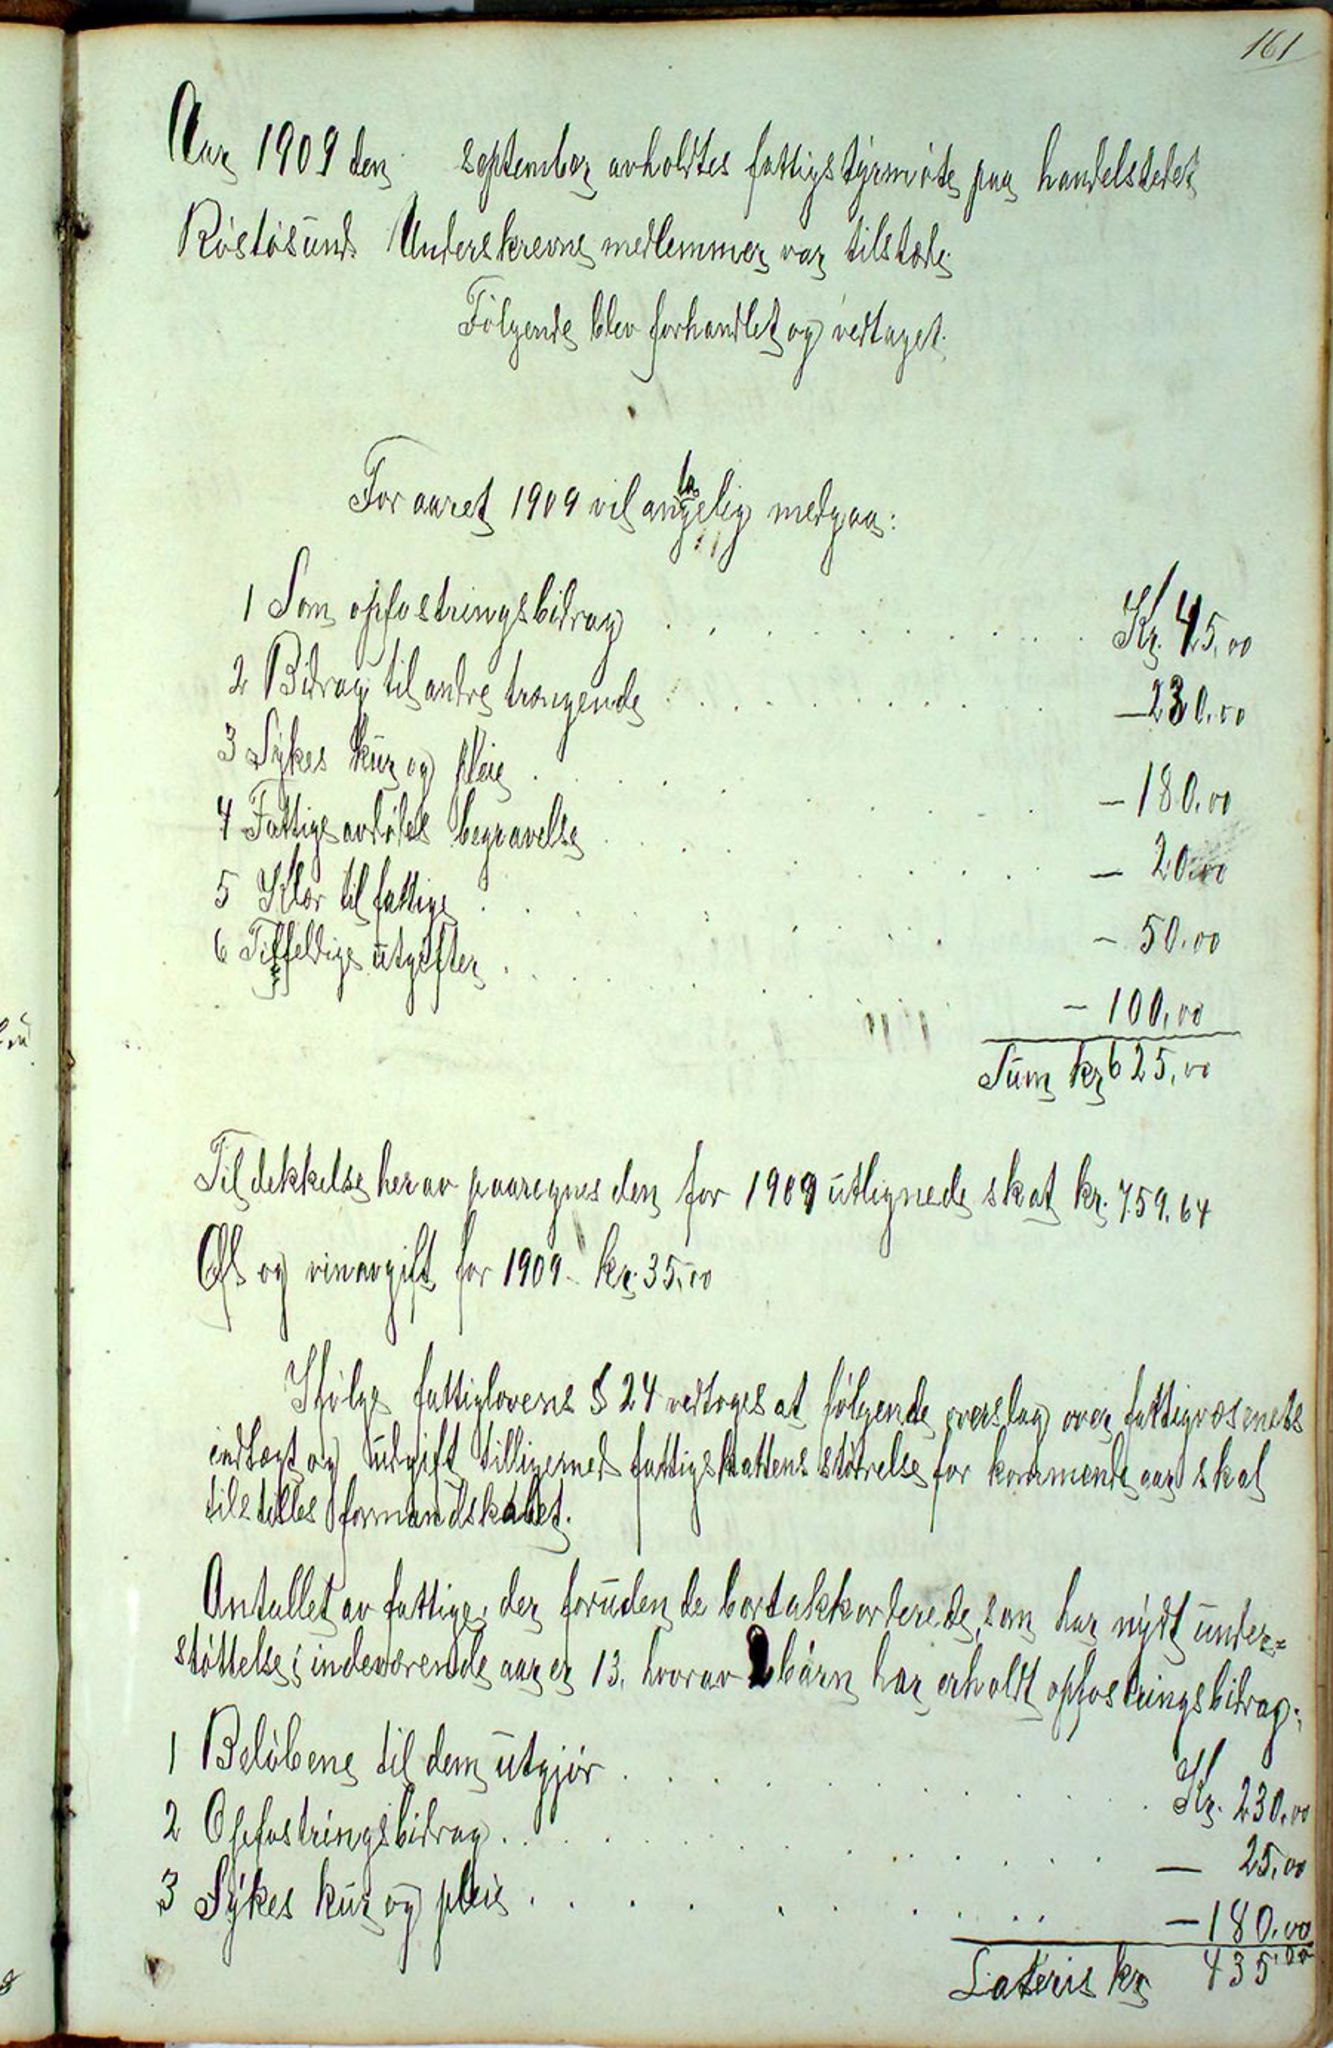 161
Aar 1909 den september avholdtes fattigstyrmöte paa handelstedet
Röstösund Underskrevne medlemmer var tilstede.
Følgende blev forhandlet og vedtaget.
For aaret 1909 vil angelig medgaa:
1 Som opfostringsbidrag Kr. 45,00
2 Bidrag til andre trængende — 230,00
3 Sykes kur og pleie — 180,00
4 Fattige avdødes begravelse — 20,00
5 Klær til fattige — 50,00
6 Tilfeldige utgifter — 100,00
Sum kr 625,00
Til dekkelse herav paaregnes den for 1909 utlignede skat kr. 759,64
Øl og vinavgift for 1909 kr. 35,00
Ifølge fattiglovens § 24 vedtoges at følgende overslag over fattigvæsenets
indtægt og udgift tilligemed fattigskattens størrelse for kommende aar skal
tilstilles formandskabet.
Antallet av fattige, der foruden de bortakkorderede, som har nydt under=
støttelse i indeværende aar er 13, hvorav 2 børn har erholdt opfostringsbidrag:
1 Beløbene til dem utgjør Kr. 230,00
2 Opfostringsbidrag — 25,00
3 Sykes kur og pleie — 180,00
Lateris kr 435,00